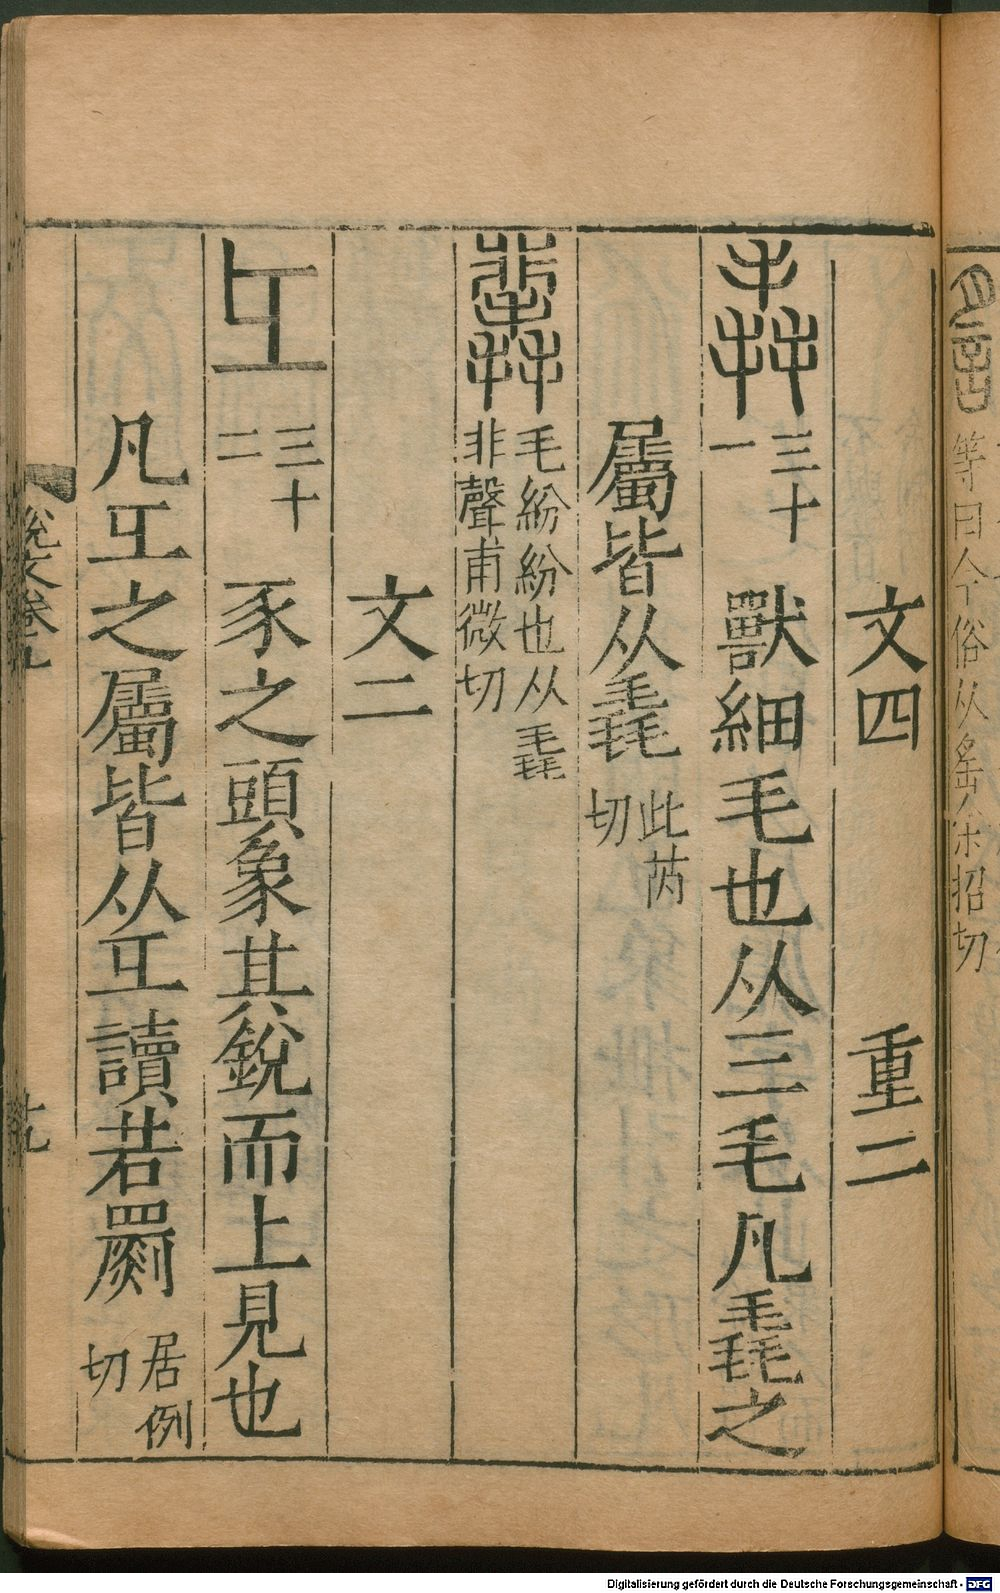 等曰今俗从䍃余招切
文四 重二
毳 三十一 獸細毛也从三毛凡毳之
屬皆从毳 此芮切
𣰿 毛紛紛也从毳非聲甫微切
文二
彑 三十二 豕之頭象其銳而上見也
凡彑之屬皆从彑讀若罽 居例切
說文卷九
Digitalisierung gefördert durch die Deutsche Forschungsgemeinschaft - DFG